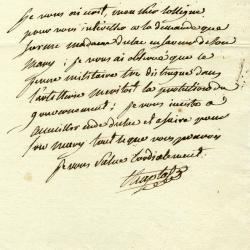 je vous ai écrit, mon cher collègue
pour vous intéresser a la demande que
forme madame dulac en faveur de son
mary; je vous ai observé que ce
jeune militaire tres distingué dans
l'artillerie meritoit la protection du
gouvernement; je vous invite a
accueillir mde dulac et a faire pour
son mary tout ce que vous pouvez
je vous salue cordialement.